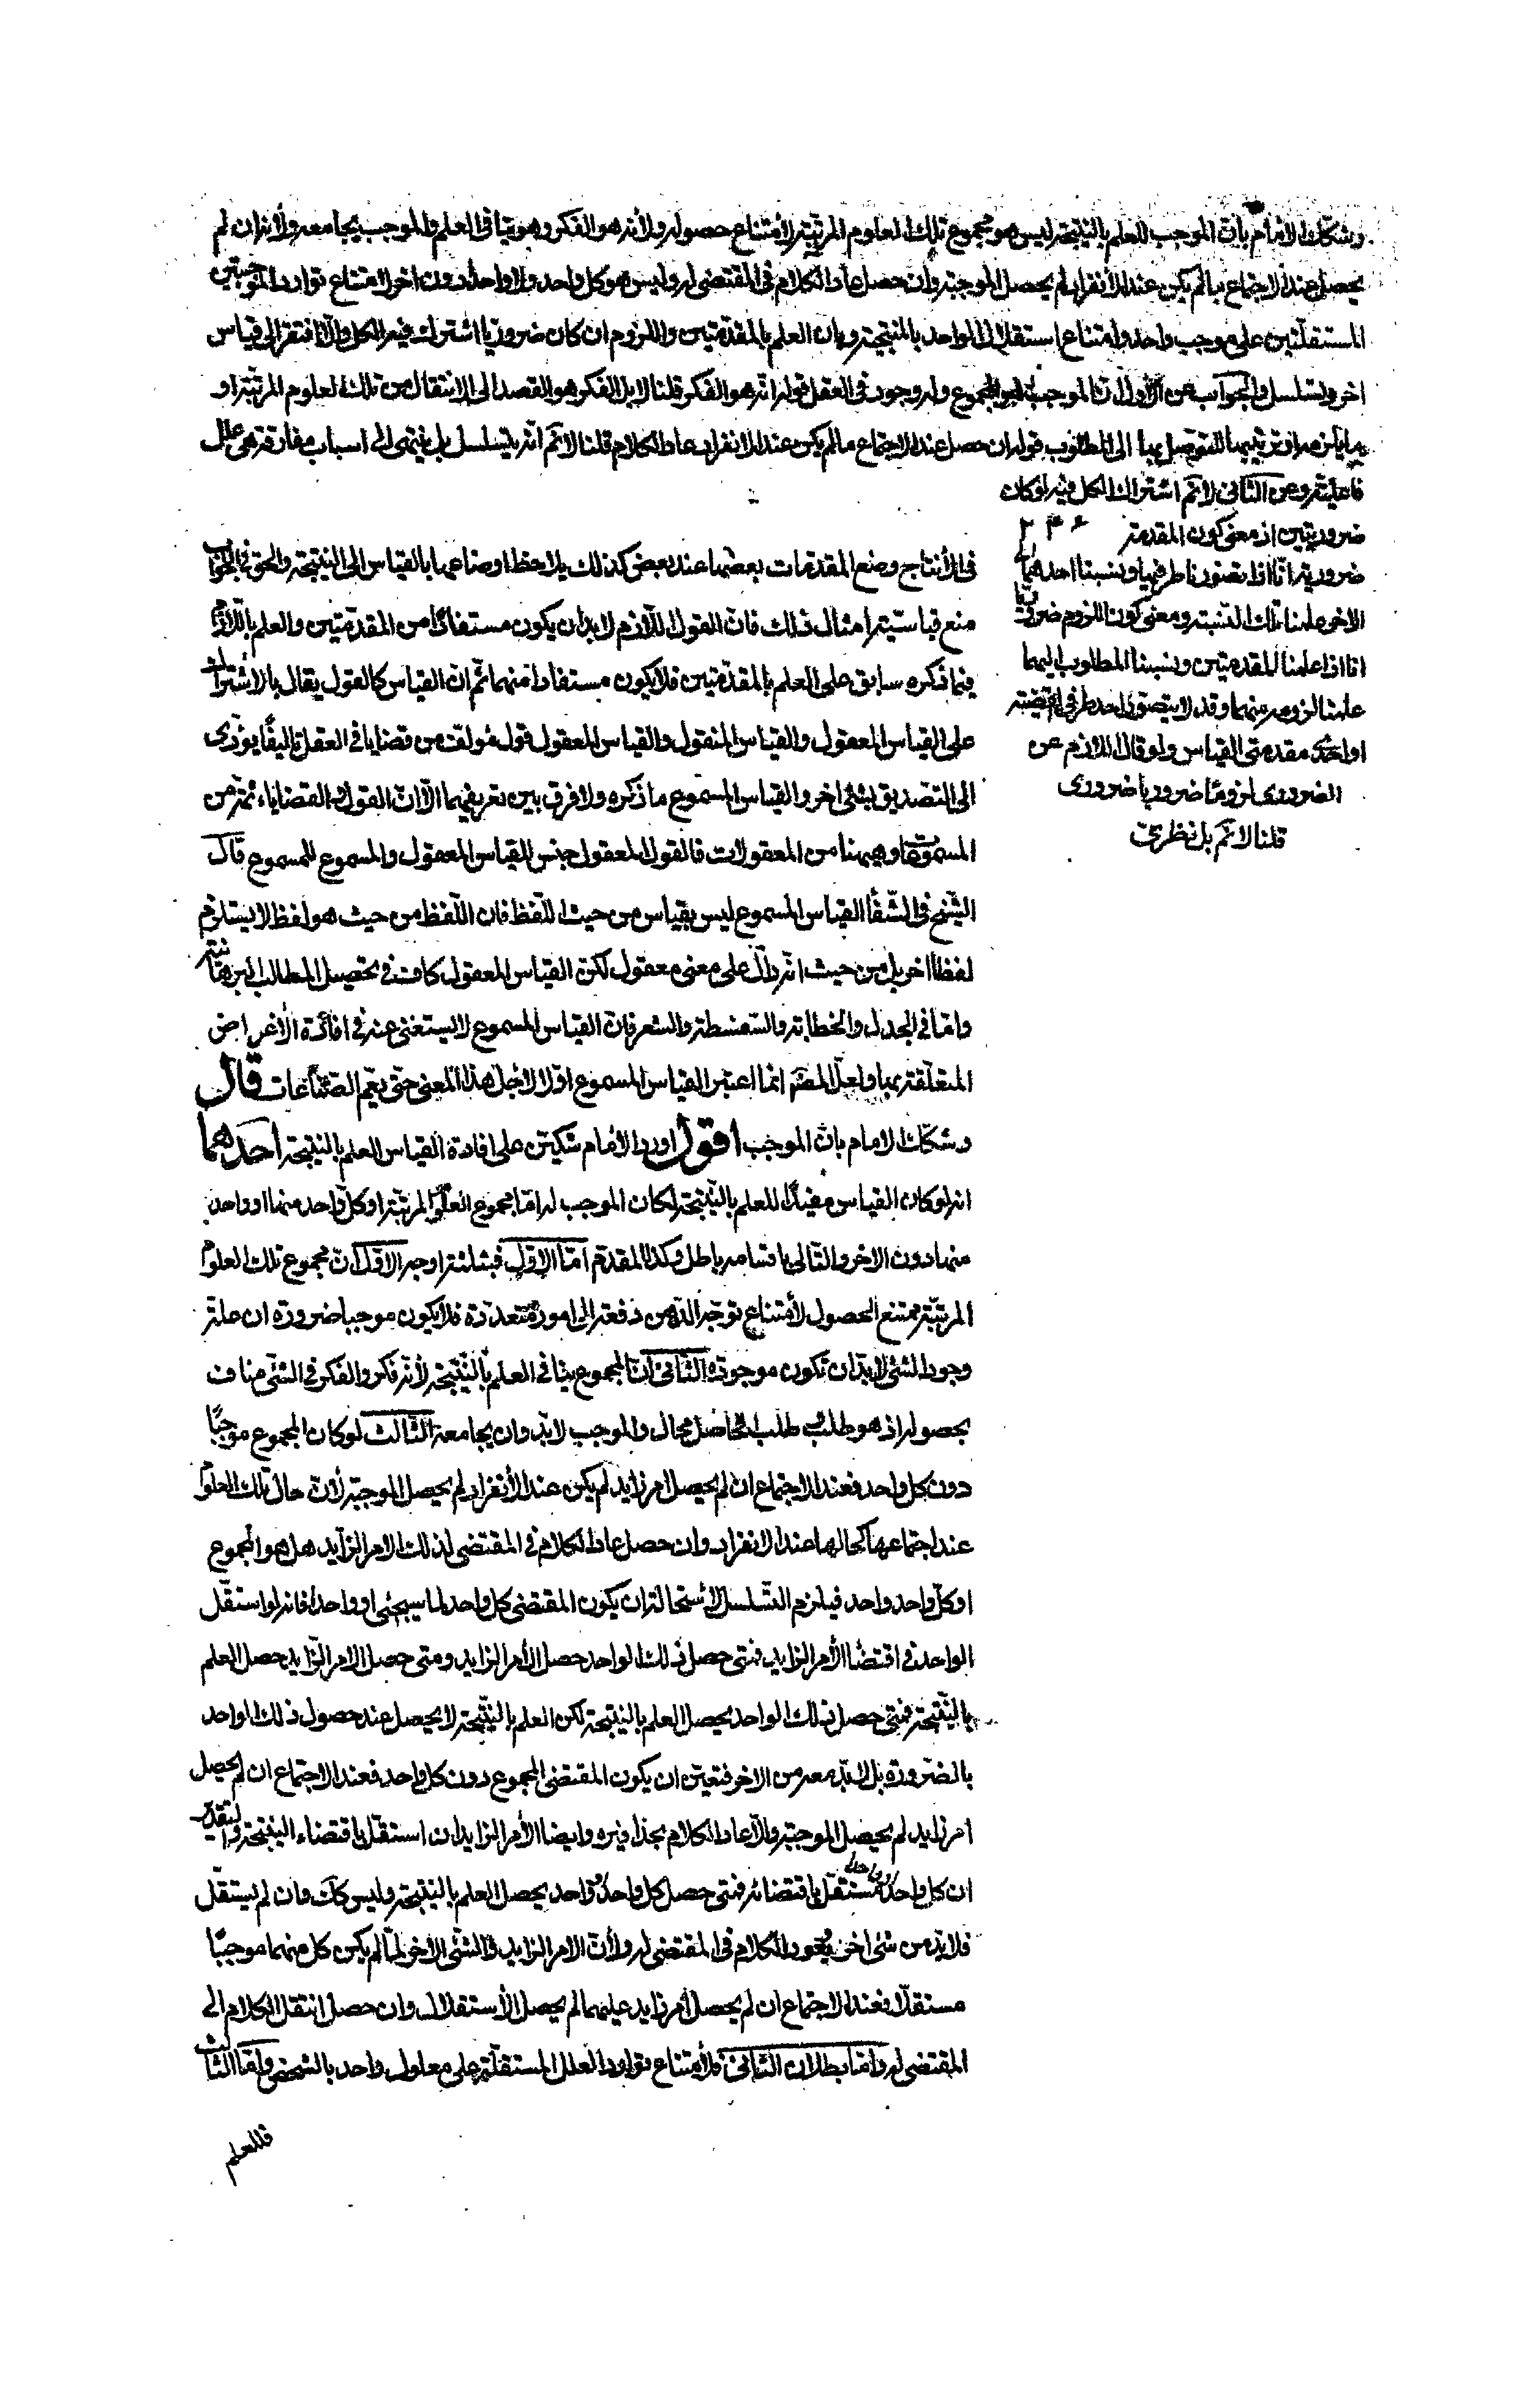 وشكك الامام بان الموجب للعلم بالنتيجة ليس هو مجموع تلك العلوم المرتبة لأمتناع حصوله ولأنه هو الفكر وهو ينافى العلم والموجب يجامعه ولأنه ان لم
يحصل عند الاجتماع ما لم يكن عند الانفراد لم يحصل الموجبية وان حصل عاد الكلام فى المقتضى له وليس هو كل واحد ولا واحدا دون اخر لامتناع توارد الموجبين
المستقلتين على موجب واحد وامتناع استقلال الواحد بالنتيجة وبان العلم بالمقدمتين واللزوم ان كان ضروريا اشترك فيه الكل والا افتقر الى قياس
اخر ولتسلسل والجواب عن الأول ان الموجب هو المجموع وله وجود فى العقل قوله انه هو الفكر قلنا لا بل الفكر هو القصد الى الانتقال من تلك العلوم المرتبة او
ما يلزمه او ترتيبها للتوصل بها الى المطلوب قوله ان حصل عند الاجتماع ما لم يكن عند الانفراد عاد الكلام قلنا لانم انه يتسلسل بل ينتهى الى اسباب مفارقة هى علل
فاعلية وعن الثانى لانم اشتراك الكل فيه لو كان
ضروريتين اذ معنى كون المقدمة
ضرورية انا اذا تصورنا طرفيها ونسبنا احدهما الى
الاخر علمنا تلك النسبة ومعنى كون اللزوم ضروريا
انا اذا علمنا المقدمتين ونسبنا المطلوب اليهما
علمنا لزومه منهما وقد لا يتصور احد طرفى القضية
او احدى مقدمتى القياس ولو قال اللازم عن
الضرورى لزوما ضروريا ضرورى
قلنا لانم بل نظرى
٢٤٦
فى الأنتاج وضع المقدمات بعضها عند بعض كذلك يلاحظ اوضاعها بالقياس الى النتيجة والحق فى الجواب
منع قياسية امثال ذلك فان القول اللازم لابد ان يكون مستفادا من المقدمتين والعلم باللازم
فيما ذكره سابق على العلم بالمقدمتين فلا يكون مستفادا منهما ثم ان القياس كالقول يقال بالاشتراك
على القياس المعقول والقياس المنقول والقياس المعقول قول مؤلف من قضايا فى العقل تاليفا يؤدى
الى التصديق بشئ اخر والقياس المسموع ما ذكره ولا فرق بين تعريفيهما الا ان القول والقضايا ثمة من
المسموعات وههنا من المعقولات فالقول المعقول جنس للقياس المعقول والمسموع للمسموع قال
الشيخ فى الشفا القياس المسموع ليس بقياس من حيث اللفظ فان اللفظ من حيث هو لفظ لا يستلزم
لفظا اخر بل من حيث انه دال على معنى معقول لكن القياس المعقول كاف فى تحصيل المطالب البرهانية
واما فى الجدل والخطابة والسفسطة والشعر فان القياس المسموع لا يستغنى عنه فى افادة الأغراض
المتعلقة بها ولعل المصنف انما اعتبر القياس المسموع اولا لاجل هذا المعنى حتى يعم الصناعات قال
وشكك الامام بان الموجب اقول اورد الأمام شكين على افادة القياس العلم بالنتيجة احدهما
انه لو كان القياس مفيدا للعلم بالنتيجة لكان الموجب له اما مجموع العلوم المرتبة او كل واحد منها او واحد
منها دون الاخر والتالى باقسامه باطل وكذا المقدم اما الاول فبثلثة اوجه الاول ان مجموع تلك العلوم
المرتبة ممتنع الحصول لأمتناع توجه الذهن دفعة الى امور متعددة فلا يكون موجبا ضرورة ان علة
وجود الشئ لابد ان تكون موجودة الثانى ان المجموع ينافى العلم بالنتيجة لأنه فكر والفكر فى الشئ مناف
بحصوله اذ هو طلب و طلب الحاصل محال والموجب لابد وان يجامعه الثالث لو كان المجموع موجبا
دون كل واحد فعند الاجتماع ان لم يحصل امر زايد لم يكن عند الأنفراد لم يحصل الموجبية لأن حال تلك العلوم
عند اجتماعها كحالها عند الانفراد وان حصل عاد الكلام فى المقتضى لذلك الامر الزايد هل هو المجموع
او كل واحد واحد فيلزم التسلسل لأستحالة ان يكون المقتضى كل واحد لما سيجئ او واحدا فانه لو استقل
الواحد فى اقتضا الأمر الزايد فمتى حصل ذلك الواحد حصل الأمر الزايد ومتى حصل الامر الزايد حصل العلم
بالنتيجة فمتى حصل ذلك الواحد يحصل العلم بالنتيجة لكن العلم بالنتيجة لا يحصل عند حصول ذلك الواحد
بالضرورة بل لابد معه من الاخر فتعين ان يكون المقتضى المجموع دون كل واحد فعند الاجتماع ان لم يحصل
امر زايد لم يحصل الموجبية والا عاد الكلام بحذافيره وايضا الأمر الزايد ان استقل باقتضاء النتيجة والتقدير
ان كل واحد او واحدا مستقل باقتضائه فمتى حصل كل واحد او واحد يحصل العلم بالنتيجة وليس كك وان لم يستقل
فلابد من شئ اخر ويعود الكلام فى المقتضى له ولأن الامر الزايد والشئ الاخر لما لم يكن كل منهما موجبا
مستقلا فعند الاجتماع ان لم يحصل أمر زايد عليهما لم يحصل الأستقلال وان حصل انتقل الكلام الى
المقتضى له واما بطلان الثانى فلأمتناع توارد العلل المستقلة على معلول واحد بالشخص واما الثالث
فللعلم